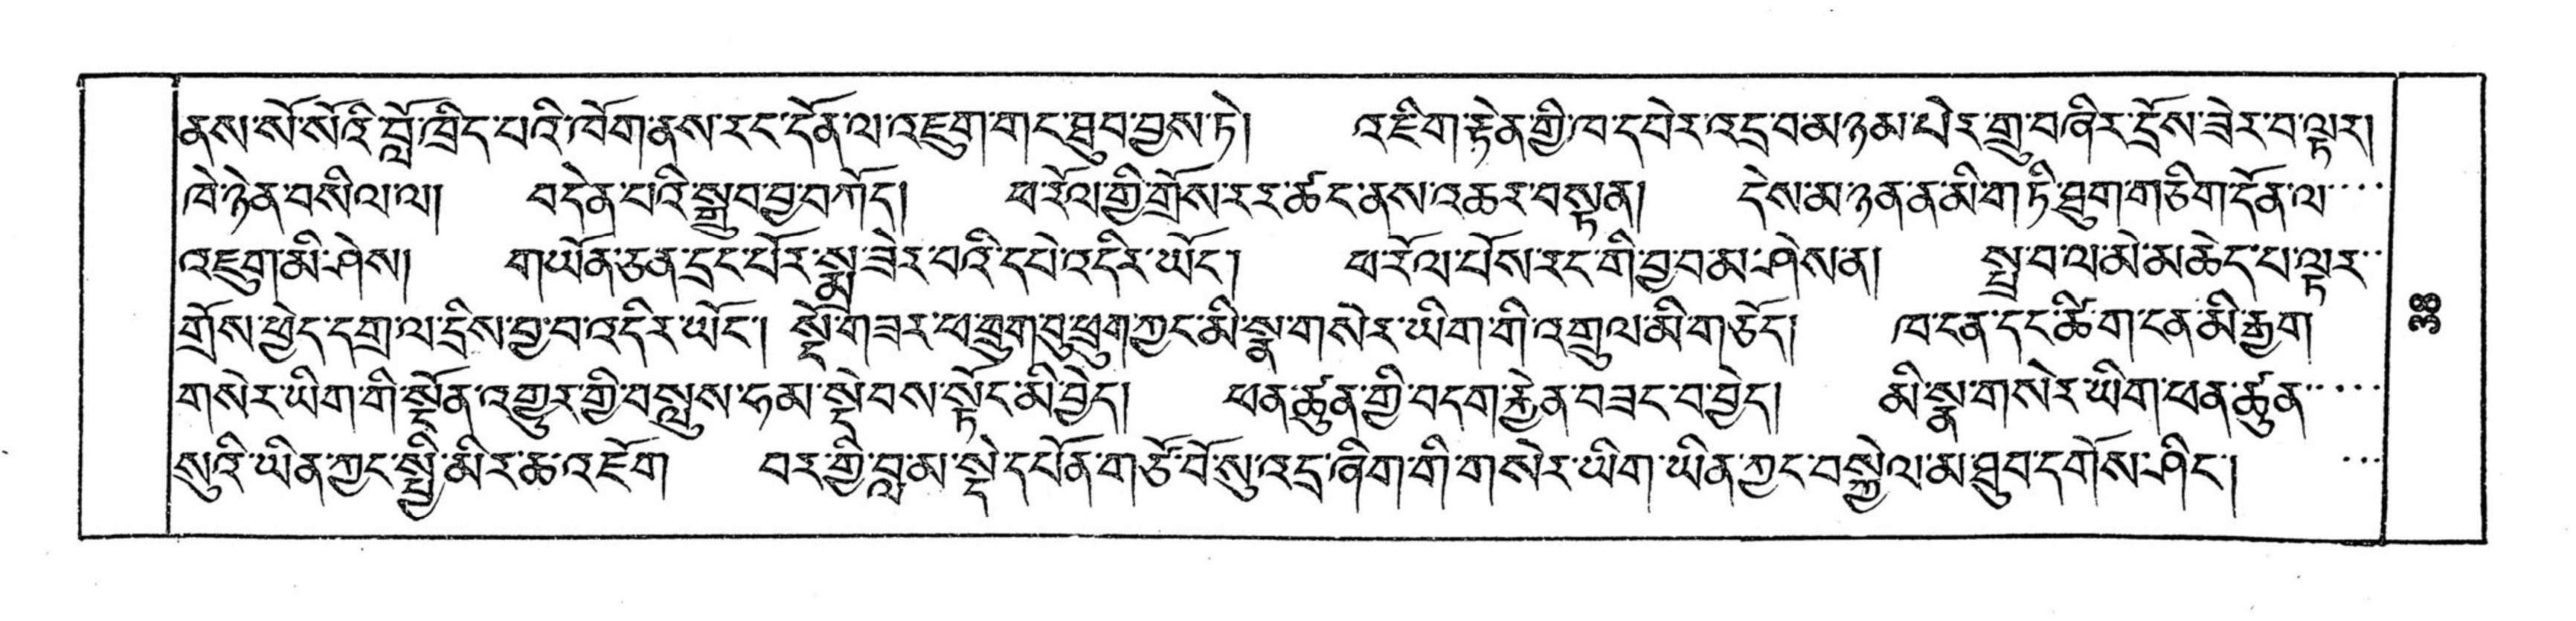 ནས་སོ་སོའི་བློ་ཁྲིད་པའི་ཁོག་ནས་རང་དོན་ལ་འཇུག་གང་ཐུབ་བྱས་ཏེ། འཇིག་རྟེན་གྱི་ཁ་དཔེར་འདྲ་བམ་ཉམ་པེར་གྲུ་བཞིར་དྲོས་ཟེར་བ་ལྟར།
ཁེ་ཉེན་བསིལ་ལ། བདེན་པའི་སྒྲུབ་བྱ་བཀོད། ཕ་རོལ་གྱི་གྲོས་རར་ཚང་ནས་འཆར་བསྟན། དེས་མ་ཉན་ན་མི་ག་ཏི་ཐུག་གཅིག་དོན་ལ་....
འཇུག་མི་ཤེས། གཡོན་ཅན་དྲང་པོར་སྨྲ་ཟེར་བའི་དཔེ་འདིར་ཡོང་། ཕ་རོལ་པོས་རང་གི་བྱ་བ་མ་ཤེས་ན། སྤྲ་བ་ལ་མེ་མཆེད་པ་ལྟར་..
གྲོས་ཕྱེད་དགྲ་ལ་དྲིས་བྱ་བ་འདིར་ཡོང་། སྡེ་གཟར་ཕ་ཕྲུག་བུ་ཕྲུག་ཀྱང་མི་སྣ་གསེར་ཡིག་གི་འགྲུལ་མི་གཅོད། ཁ་ངན་དང་ཚིག་ངན་མི་རྒྱག
གསེར་ཡིག་གི་སྔོན་འགྱུར་གྱི་བསླུས་ཧམ་སྡེབས་སྟོང་མི་བྱེད། ཕན་ཚུན་གྱི་བདག་རྐྱེན་བཟང་བ་བྱེད། མི་སྣ་གསེར་ཡིག་ཕན་ཚུན་....
སུའི་ཡིན་ཀྱང་སྤྱི་མིར་ཆ་འཇོག བར་གྱི་བླ་མ་སྡེ་དཔོན་གཙོ་བོ་སུ་འདྲ་ཞིག་གི་གསེར་ཡིག་ཡིན་ཀྱང་བསྐྱེལ་མ་ཐུབ་དགོས་ཤིང་། ...